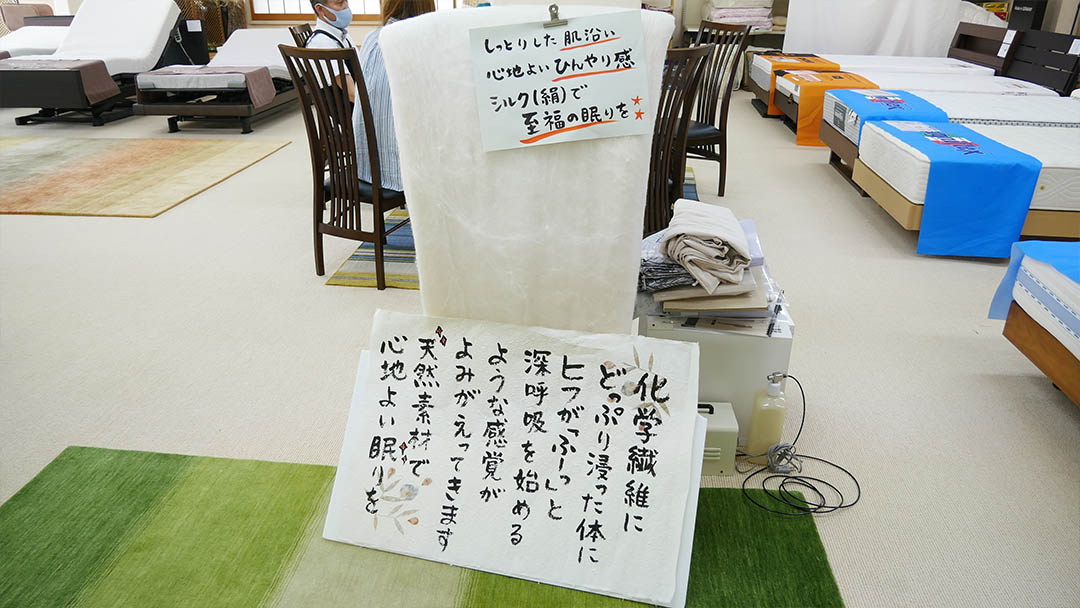 しっとりした肌沿い
心地よいひんやり感
シルク(絹)で
至福の眠りを
化学繊維に
どっぷり浸った体に
ヒフが「ふーっ」と
深呼吸を始める
ような感覚が
よみがえってきます
天然素材で
心地よい眠りを